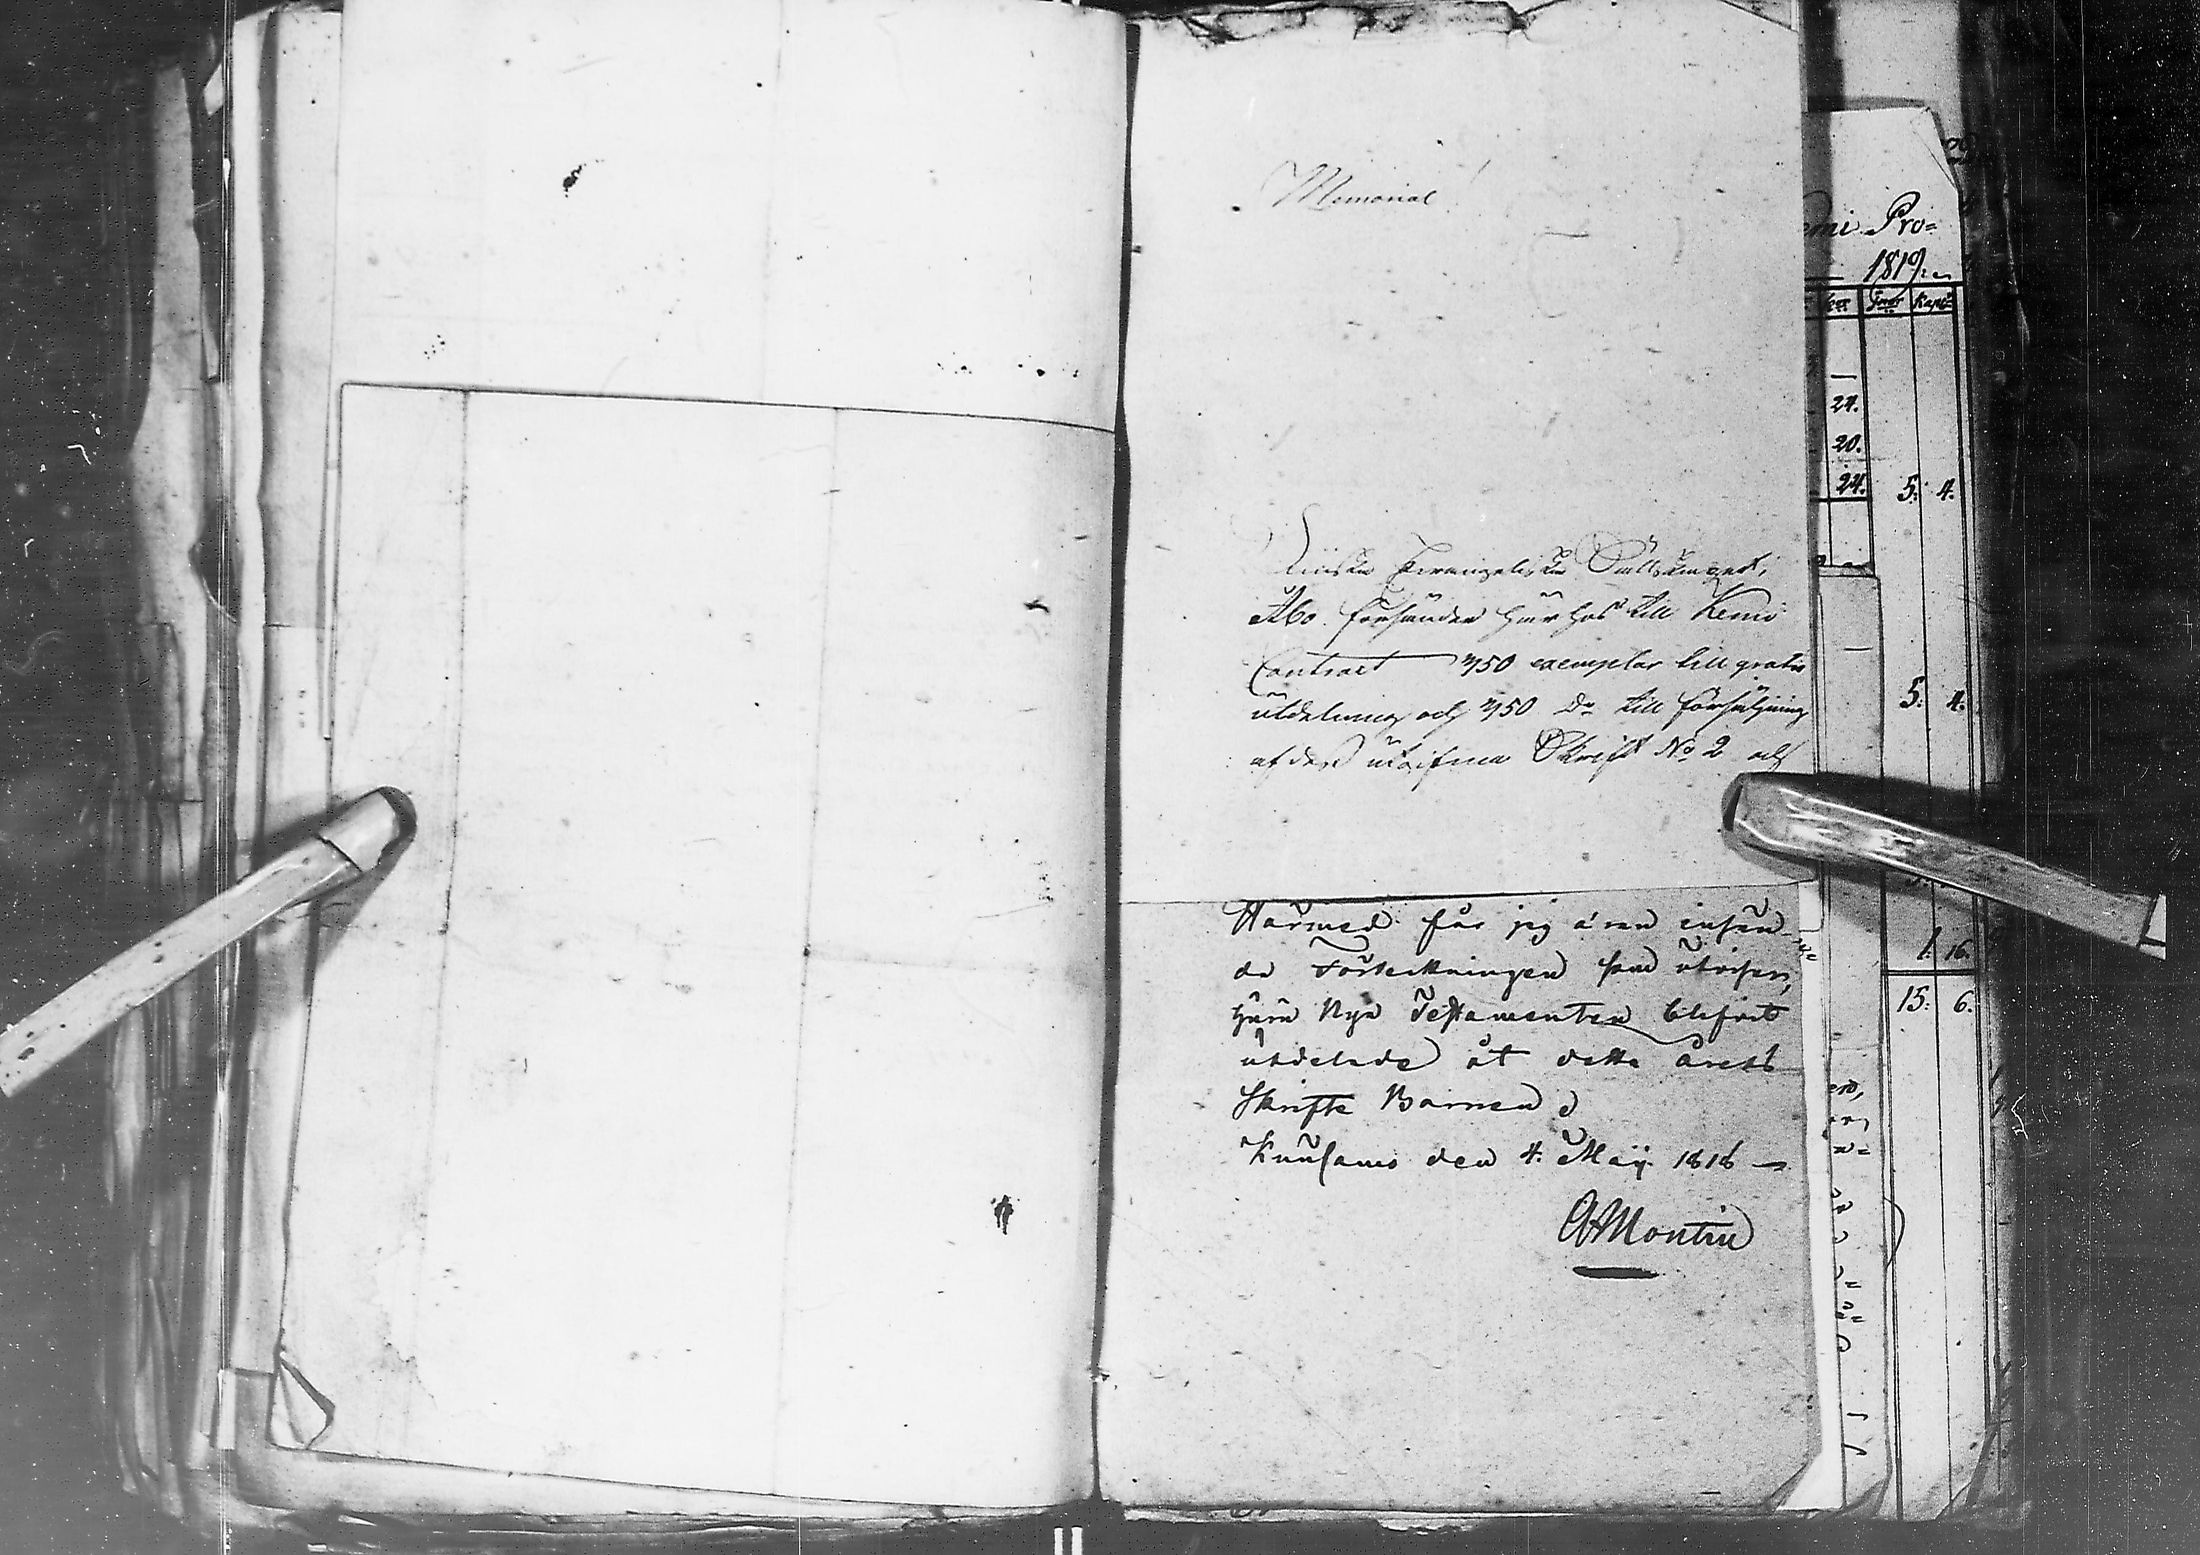 Memorial
Finska Evangeliska Sällskapet i
Åbo försänder härhos till Kemi
Contract 750 exemplar till gratis
utdelning och 750 Do till försäljning
af dess utgifna Skrift No 2 och
Härmed får jag äran insän-
da Förteckningen som utviser,
huru Nya Testamenten blifvit
utdelade åt detta årets
Skrifte Barnen
Kuusamo den 4. Maij 1818
A Montin
Pro=
1819
24.
20.
24. 5: 4.
5: 4.
1: 16.
15: 6.